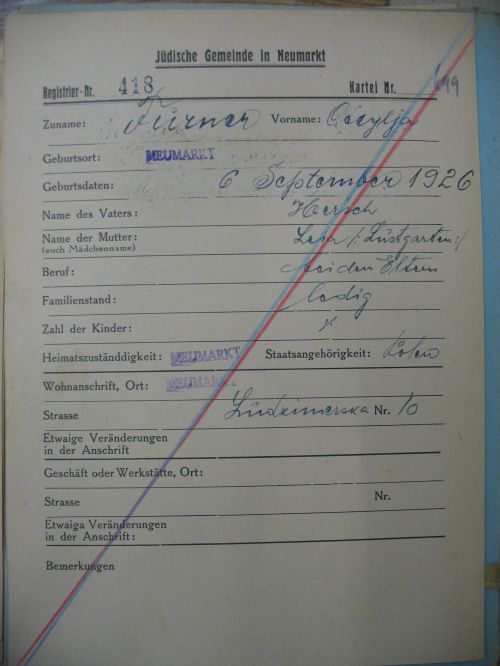 Jüdische Gemeinde in Neumarkt
Registrier-Nr. 418 Kartei Nr. 699
Zuname: Fürner Vorname: Cecylja
Geburtsort: NEUMARKT
Geburtsdaten: 6 September 1926
Name des Vaters: Hersch
Name der Mutter: Leia /: Lustgarten:/
(auch Mädchenname)
Beruf: bei den Eltern
Familienstand: ledig
Zahl der Kinder:
Heimatszuständdigkeit: NEUMARKT Staatsangehörigkeit: Polen
Wohnanschrift, Ort: NEUMARKT
Strasse Ludzimerska Nr. 10
Etwaige Veränderungen
in der Anschrift
Geschäft oder Werkstätte, Ort:
Strasse Nr.
Etwaiga Veränderungen
in der Anschrift:
Bemerkungen